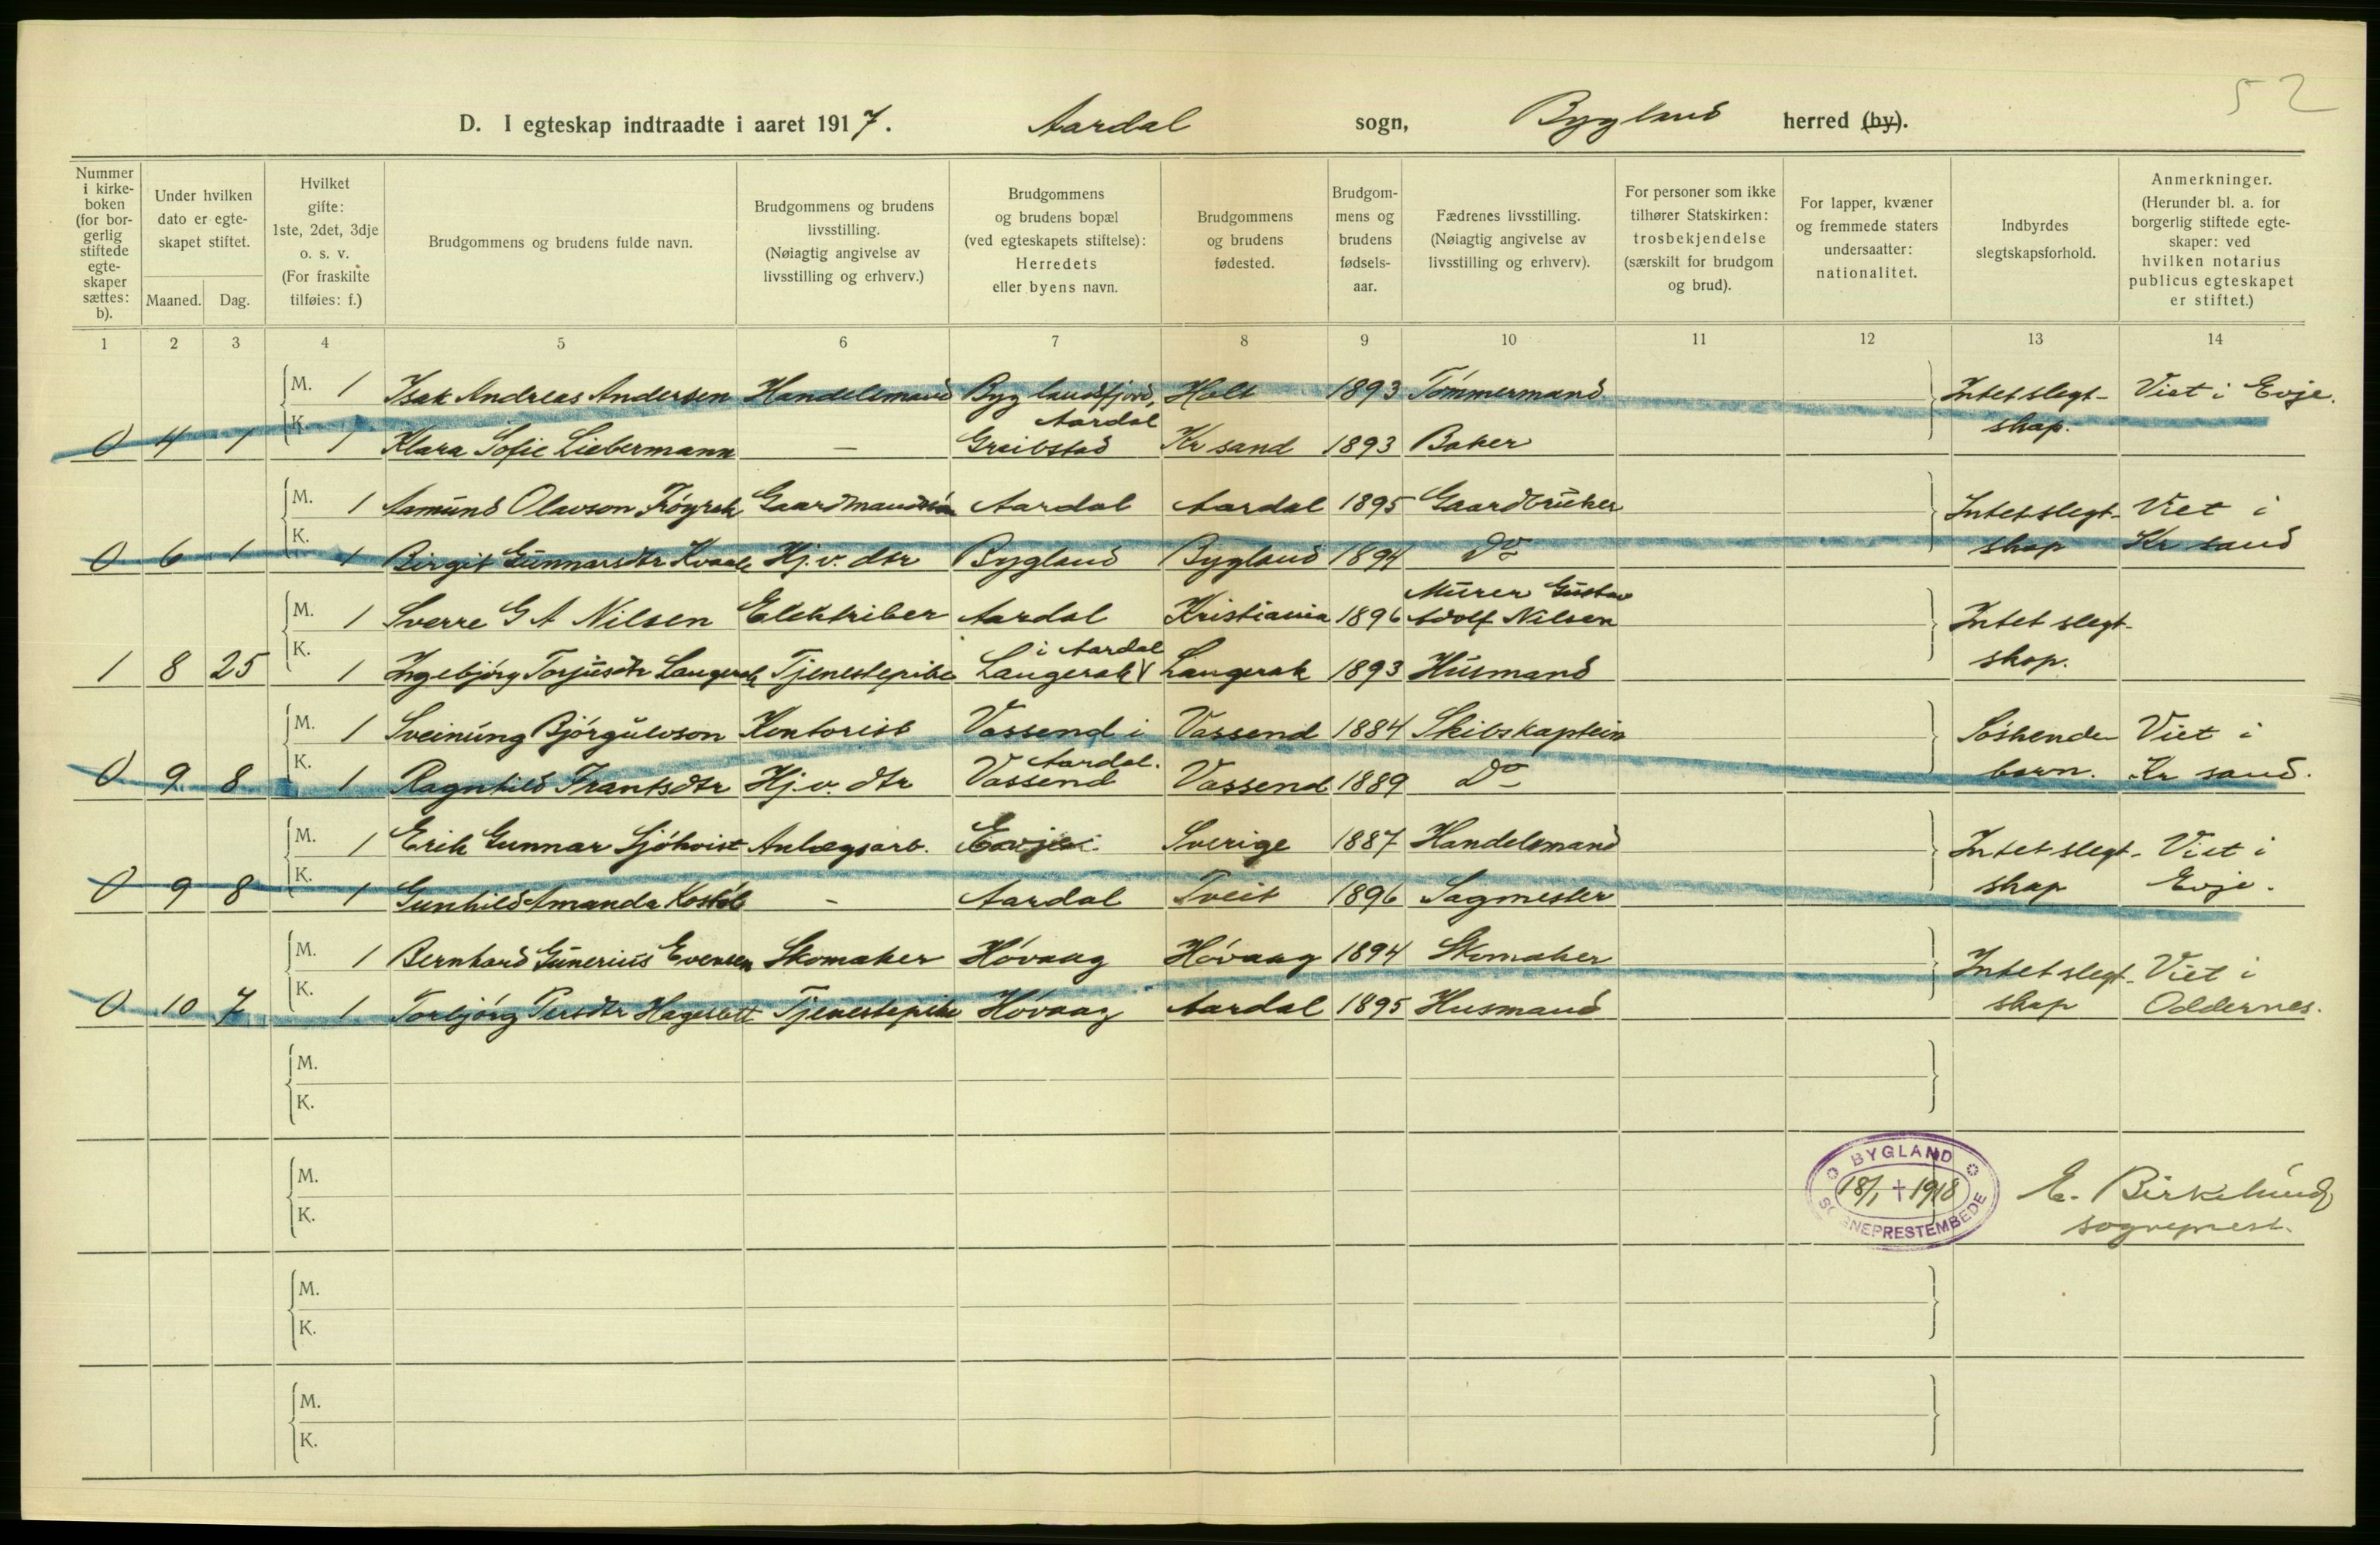 52
D. I egteskap indtraadte i aaret 1917. Aardal sogn, Bygland herred (by).
Nummer i kirke-boken (for bor-gerlig stiftede egte-skaper sættes: b).
Under hvilken dato er egte-skapet stiftet.
Maaned. Dag.
Hvilket gifte: 1ste, 2det, 3dje o. s. v. (For fraskilte tilføies: f.)
Brudgommens og brudens fulde navn.
Brudgommens og brudens livsstilling. (Nøiagtig angivelse av livsstilling og erhverv.)
Brudgommens og brudens bopæl (ved egteskapets stiftelse): Herredets eller byens navn.
Brudgommens og brudens fødested.
Brudgom-mens og brudens fødsels-aar.
Fædrenes livsstilling. (Nøiagtig angivelse av livsstilling og erhverv).
For personer som ikke tilhører Statskirken: trosbekjendelse (særskilt for brudgom og brud).
For lapper, kvæner og fremmede staters undersaatter: nationalitet.
Indbyrdes slegtskapsforhold.
Anmerkninger. (Herunder bl. a. for borgerlig stiftede egte-skaper: ved hvilken notarius publicus egteskapet er stiftet.)
1 2 3 4 5 6 7 8 9 10 11 12 13 14
M. 1 Isak Andreas Andersen Handelsmand Byglandsfjord, Aardal Holt 1893 Tömmermand Intet slegt- Viet i Evje.
0 4 1 K. 1 Klara Sofie Liebermann — Greibstad Kr sand 1893 Baker skap.
M. 1 Aamund Olavson Fröyrak Gaardmandssön Aardal Aardal 1895 Gaardbruker Intet slegt- Viet i
0 6 1 K. 1 Birgit Gunnarsdtr Kvaale Hj. v. dtr Bygland Bygland 1894 Do skap Kr sand
M. 1 Sverre G A Nilsen Elektriker Aardal Kristiania 1896 Murer Gustav Adolf Nilsen Intet slegt-
1 8 25 K. 1 Ingebjörg Torjusdtr Langerak Tjenestepike Langerak i Aardal Langerak 1893 Husmand skap.
M. 1 Sveinung Björgulvson Kontorist Vassend i Aardal. Vassend 1884 Skibskaptein Söskende Viet i
0 9 8 K. 1 Ragnhild Frantsdtr Hj. v. dtr Vassend Vassend 1889 Do barn. Kr sand.
M. 1 Erik Gunnar Sjökvist Anlægsarb. Evje Sverige 1887 Handelsmand Intet slegt- Viet i
0 9 8 K. 1 Gunhild Amanda Kostöl - Aardal Tveit 1896 Sagmester skap Evje.
M. 1 Bernhard Gunerius Evensen Skomaker Hövaag Hövaag 1894 Skomaker Intet slegt- Viet i
0 10 7 K. 1 Torbjörg Persdtr Hageslett Tjenestepike Hövaag Aardal 1895 Husmand skap Oddernes.
M.
K.
M.
K.
BYGLAND
18/1 † 1918
SOGNEPRESTEMBEDE
E. Birkelund
sogneprest.
M.
K.
M.
K.